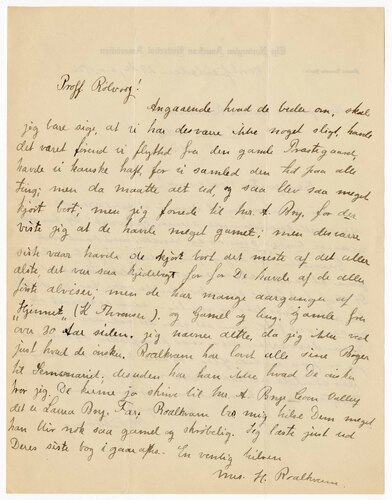 Proff Rölvaag!
Angaaende hvad de beder om, skal
jeg bare sige, at vi har desvære ikke noget sligt, havde
det været førend vi flytted fra den gamle Præstegaard,
havde vi kanske haft, for vi samled den tid paa alle
ting; men da maatte det ud, og saa blev saa meget
kjört bort; men jeg til Mrs. A. Bry. for der
viste jeg at de havde meget gamet; men desvære
sidste vaar havde de kjört bort det meste af det aller
ælste, det var saa kjedeligt for for De havde af de aller
förste alviser; men de har mange aargange af
"Hjemmet" (K Thronsen), og Gamel og Ung. Gamle fra
over 30 Aar siden. jeg nævner dette, da jeg ikke ved
just hvad de önske. Roalkvam har lovt alle sine Böger
til Semenariet, desuden har han ikke hvad De önske
tror jeg. De kunne jo skrive til Mrs A. Bry. Coon Valley
det er Laura Bry. Far, Roalkvam ba mig hilse Dem meget
han blir nok saa gamel og skröbelig. Jeg læste just ud
Deres siste bog i gaar aftes. En venlig hilsen
Mrs. H. Roalkvam.